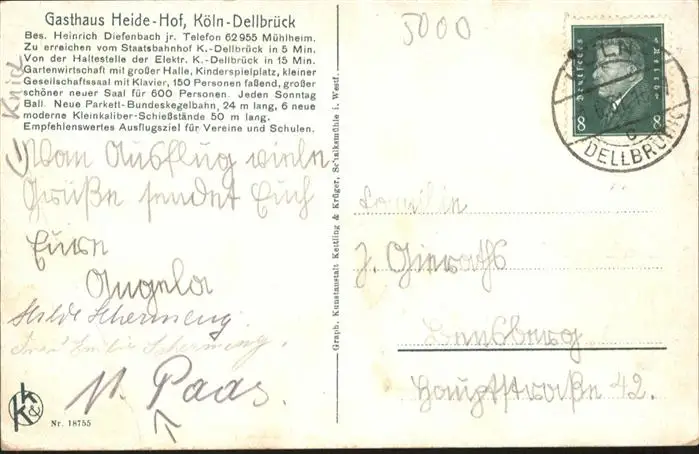 Gasthaus Heide-Hof, Köln-Dellbrück
Bes. Heinrich Diefenbach jr. Telefon 62955 Mühlheim.
Zu erreichen vom Staatsbahnhof K.-Dellbrück in 5 Min.
Von der Haltestelle der Elektr. K.-Dellbrück in 15 Min.
Gartenwirtschaft mit großer Halle, Kinderspielplatz, kleiner
Gesellschaftssaal mit Klavier, 150 Personen faßend, großer
schöner neuer Saal für 600 Personen. Jeden Sonntag
Ball. Neue Parkett-Bundeskegelbahn, 24 m lang, 6 neue
moderne Kleinkaliber-Schießstände 50 m lang.
Empfehlenswertes Ausflugsziel für Vereine und Schulen.
Knick
Vom Ausflug viele
Grüße sendet Euch
Eure
Angela
Hilde Schermeng.
Schermeng.
M. Paas.
k
k &
Nr. 18755
Graph. Kunstanstalt Kettling & Krüger, Schalksmühle i. Westf.
5000
Deutsches Reich
8 8
KÖLN
DELLBRÜCK
Familie
J. Gieraths
Bensberg
Hauptstraße 42.